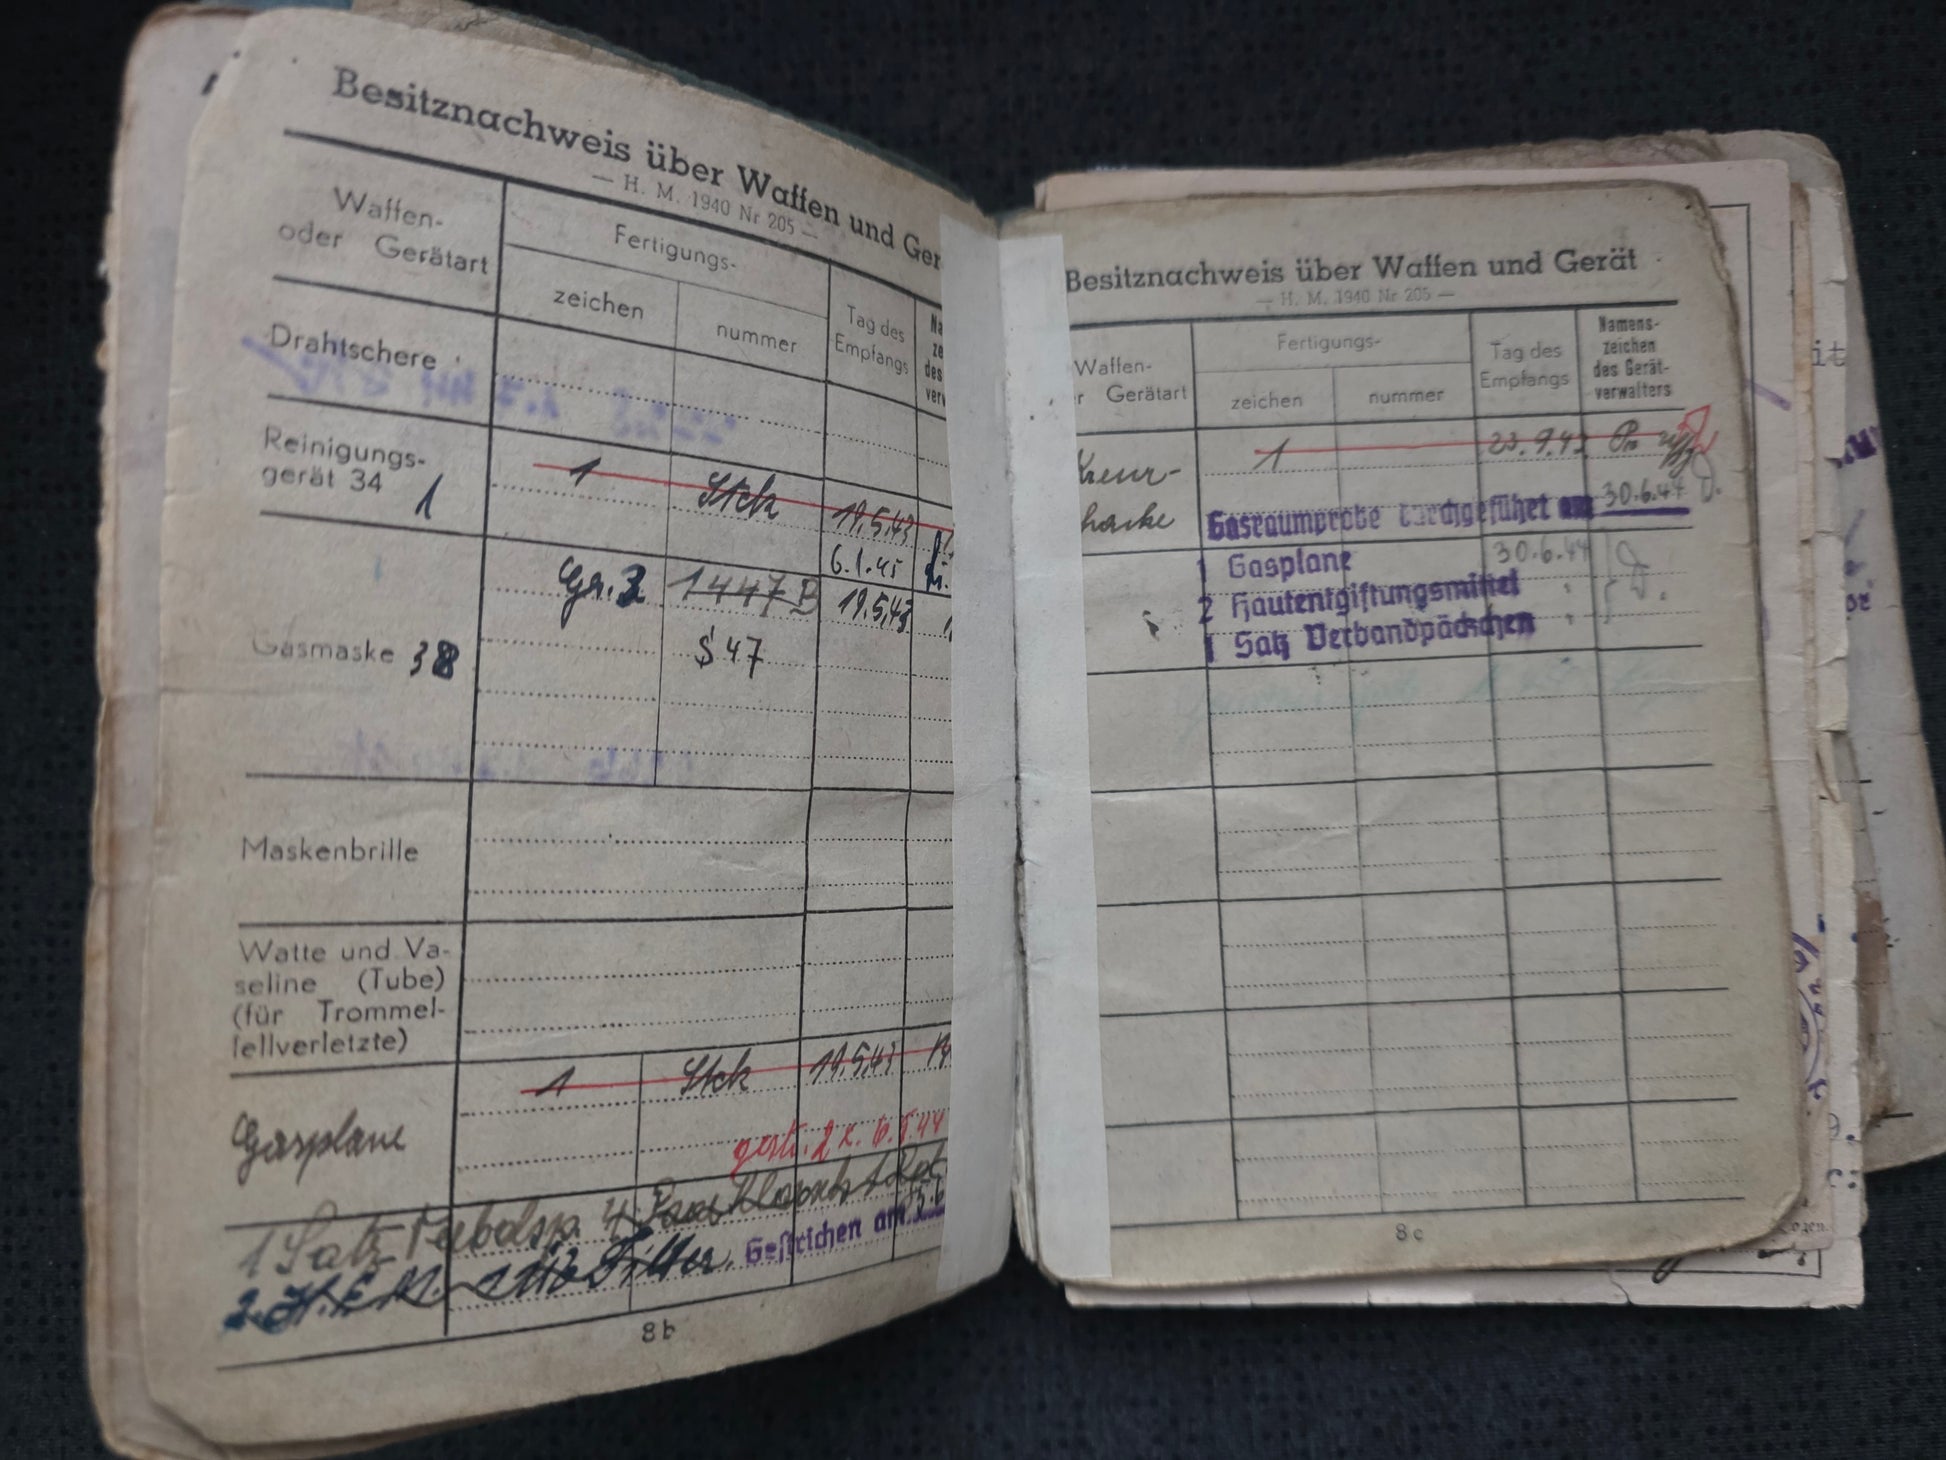 Besitznachweis über Waffen und Ger
— H. M. 1940 Nr 205 —
Waffen-
oder Gerätart
Fertigungs-
zeichen
nummer
Tag des
Empfangs
Na
ze
des
verv
Drahtschere
Reinigungs-
gerät 34 1
1 Stck 19.5.43
6.1.45
Gasmaske 38
Gr. 2 1447 B 19.5.43
S 47
Maskenbrille
Watte und Va-
seline (Tube)
(für Trommel-
fellverletzte)
Gasplane
1 Stck 19.5.43
gestr.
1 Satz
Gestrichen am
2. H.E.M. Filter.
8b
Besitznachweis über Waffen und Gerät
— H. M. 1940 Nr 205 —
Waffen-
r Gerätart
Fertigungs-
zeichen
nummer
Tag des
Empfangs
Namens-
zeichen
des Gerät-
verwalters
Kreuz-
hacke
1 23.9.43
Gasraumprobe durchgeführt am 30.6.44
1 Gasplane 30.6.44
2 Hautentgiftungsmittel "
1 Satz Verbandpäckchen "
8c